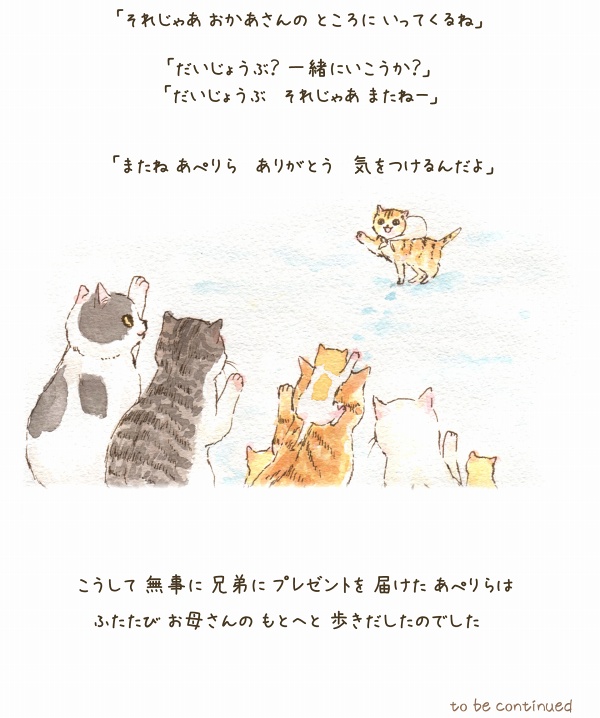 「それじゃあ おかあさんの ところに いってくるね」
「だいじょうぶ? 一緒にいこうか?」
「だいじょうぶ それじゃあ またねー」
「またね あぺりら ありがとう 気をつけるんだよ」
こうして 無事に 兄弟に プレゼントを 届けた あぺりらは
ふたたび お母さんの もとへと 歩きだしたのでした
to be continued